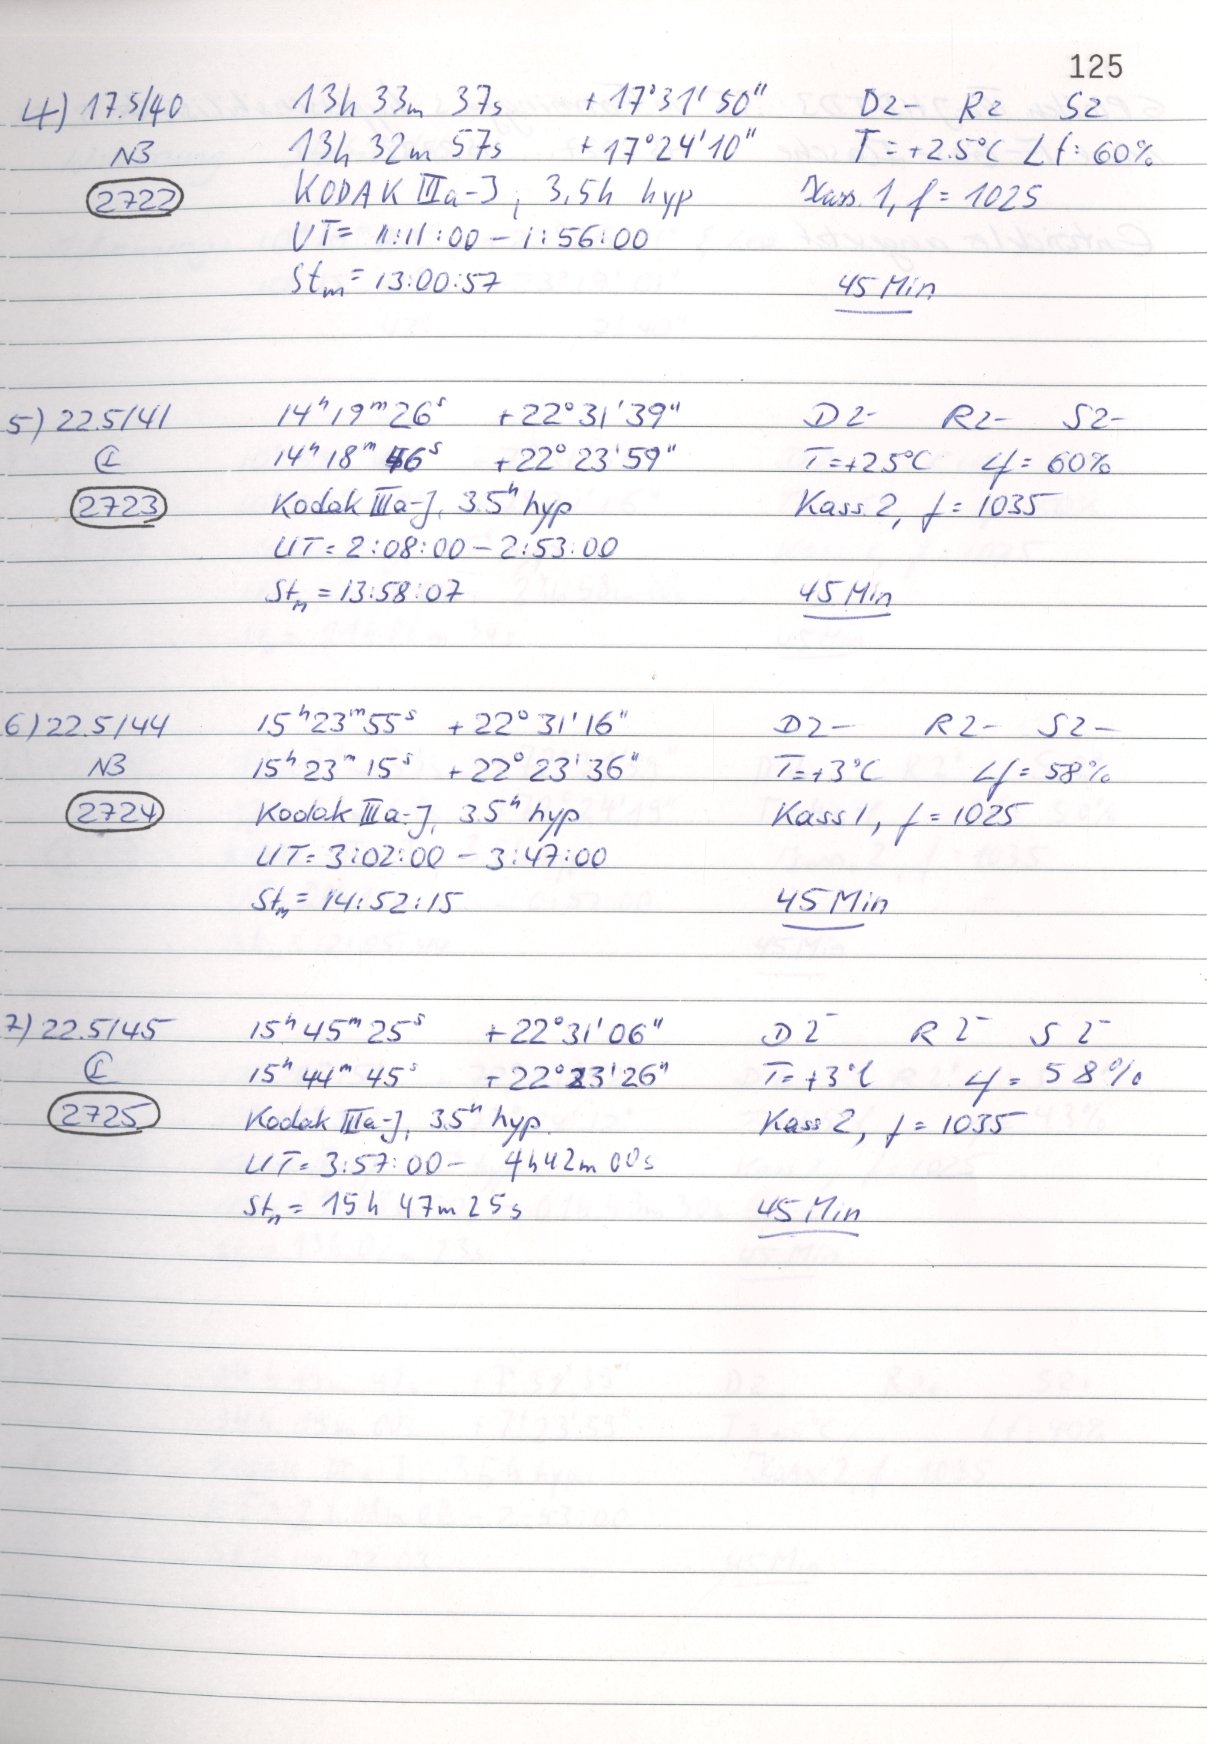 125
4) 17.5/40 13h 33m 37s +17°31'50" D2- R2 S2
N3 13h 32m 57s +17°24'10" T=+2.5°C Lf: 60%
2722 KODAK IIIa-J, 3,5h hyp Kass. 1, f = 1025
UT= 1:11:00 - 1:56:00
Stm = 13:00:57 45 Min
5) 22.5/41 14h19m26s +22°31'39" D2- R2- S2-
14h18m46s +22°23'59" T=+2.5°C Lf = 60%
2723 Kodak IIIa-J, 3.5h hyp Kass. 2, f = 1035
UT= 2:08:00 - 2:53:00
Stm = 13:58:07 45 Min
6) 22.5/44 15h23m55s +22°31'16" D2- R2- S2-
N3 15h23m15s +22°23'36" T=+3°C Lf = 58%
2724 Kodak IIIa-J, 3.5h hyp Kass 1, f = 1025
UT= 3:02:00 - 3:47:00
Stm = 14:52:15 45 Min
7) 22.5/45 15h45m25s +22°31'06" D2- R2- S2-
15h44m45s +22°23'26" T=+3°C Lf = 58%
2725 Kodak IIIa-J, 3.5h hyp. Kass 2, f = 1035
UT= 3:57:00 - 4h42m00s
Stm = 15h 47m 25s 45 Min